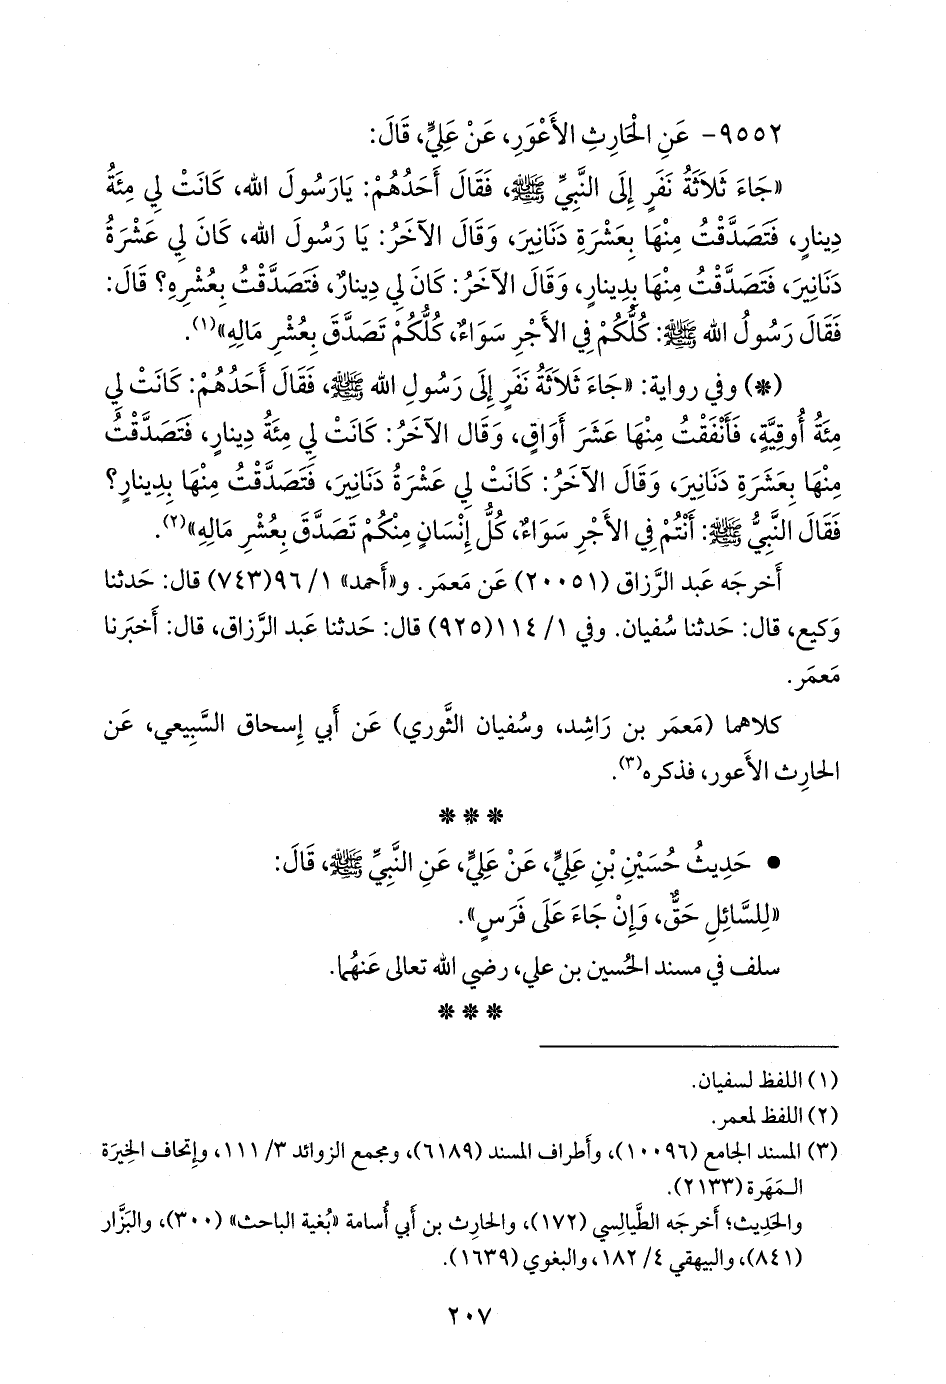 ٩٥٥٢- عَنِ الْحَارِثِ الأَعْوَرِ، عَنْ عَلِيٍّ، قَالَ:
«جَاءَ ثَلاَثَةُ نَفَرٍ إِلَى النَّبِيِّ ﷺ، فَقَالَ أَحَدُهُمْ: يَارَسُولَ الله، كَانَتْ لِي مِئَةُ
دِينارٍ، فَتَصَدَّقْتُ مِنْهَا بِعَشَرَةِ دَنَانِيرَ، وَقَالَ الآخَرُ: يَا رَسُولَ الله، كَانَ لِي عَشْرَةُ
دَنَانِيرَ، فَتَصَدَّقْتُ مِنْهَا بِدِينارٍ، وَقَالَ الآخَرُ: كَانَ لِي دِينارٌ، فَتَصَدَّقْتُ بِعُشْرِهِ؟ قَالَ:
فَقَالَ رَسُولُ الله ﷺ: كُلُّكُمْ فِي الأَجْرِ سَوَاءٌ، كُلُّكُمْ تَصَدَّقَ بِعُشْرِ مَالِهِ»(١).
(*) وفي رواية: «جَاءَ ثَلاَثَةُ نَفَرٍ إِلَى رَسُولِ الله ﷺ، فَقَالَ أَحَدُهُمْ: كَانَتْ لِي
مِئَةُ أُوقِيَّةٍ، فَأَنْفَقْتُ مِنْهَا عَشَرَ أَوَاقٍ، وَقَال الآخَرُ: كَانَتْ لِي مِئَةُ دِينارٍ، فَتَصَدَّقْتُ
مِنْهَا بِعَشَرَةِ دَنَانِيرَ، وَقَالَ الآخَرُ: كَانَتْ لِي عَشْرَةُ دَنَانِيرَ، فَتَصَدَّقْتُ مِنْهَا بِدِينارٍ؟
فَقَالَ النَّبِيُّ ﷺ: أَنْتُمْ فِي الأَجْرِ سَوَاءٌ، كُلُّ إِنْسَانٍ مِنْكُمْ تَصَدَّقَ بِعُشْرِ مَالِهِ»(٢).
أَخرجَه عَبد الرَّزاق (٢٠٠٥١) عَن مَعمَر. و«أَحمد» ١/ ٩٦(٧٤٣) قال: حَدثنا
وَكيع، قال: حَدثنا سُفيان. وفي ١/ ١١٤(٩٢٥) قال: حَدثنا عَبد الرَّزاق، قال: أَخبَرنا
مَعمَر.
كلاهما (مَعمَر بن رَاشِد، وسُفيان الثَّوري) عَن أَبي إِسحاق السَّبِيعي، عَن
الحارِث الأَعور، فذكره(٣).
* * *
• حَدِيثُ حُسَيْنِ بْنِ عَلِيٍّ، عَنْ عَلِيٍّ، عَنِ النَّبِيِّ ﷺ، قَالَ:
«لِلسَّائِلِ حَقٌّ، وَإِنْ جَاءَ عَلَى فَرَسٍ».
سلف في مسند الحُسين بن علي، رضي الله تعالى عَنهُما.
* * *
(١) اللفظ لسفيان.
(٢) اللفظ لمعمر.
(٣) المسند الجامع (١٠٠٩٦)، وأَطراف المسند (٦١٨٩)، ومجمع الزوائد ٣/ ١١١، وإِتحاف الخِيرَة
المَهَرة (٢١٣٣).
والحَدِيث؛ أَخرجَه الطَّيالِسي (١٧٢)، والحارِث بن أَبي أُسامة «بُغية الباحث» (٣٠٠)، والبَزَّار
(٨٤١)، والبيهقي ٤/ ١٨٢، والبغوي (١٦٣٩).
٢٠٧